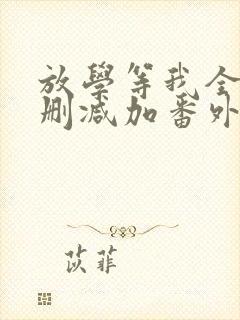 放學等我全
刪減加番外
苡菲